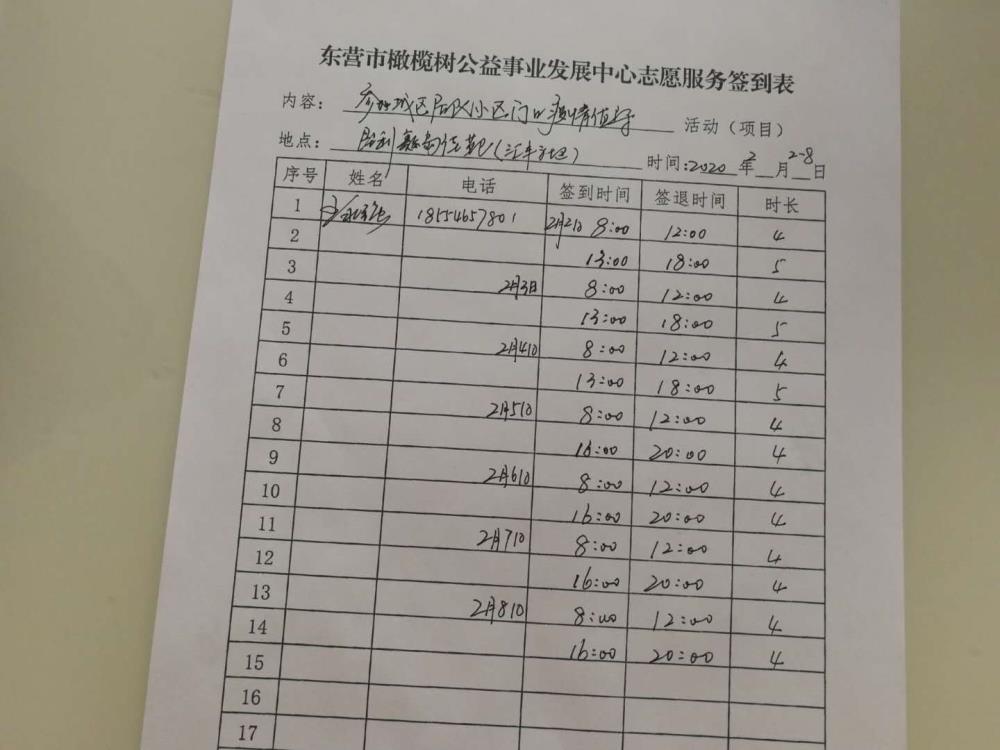 东营市橄榄树公益事业发展中心志愿服务签到表
内容： 参加城区 小区门口疫情值守 活动（项目）
地点： 胜利 时间:2020 年 2 月 2-8 日
序号 姓名 电话 签到时间 签退时间 时长
1 18554657801 2月2日 8:00 12:00 4
2 13:00 18:00 5
3 2月3日 8:00 12:00 4
4 13:00 18:00 5
5 2月4日 8:00 12:00 4
6 13:00 18:00 5
7 2月5日 8:00 12:00 4
8 16:00 20:00 4
9 2月6日 8:00 12:00 4
10 16:00 20:00 4
11 2月7日 8:00 12:00 4
12 16:00 20:00 4
13 2月8日 8:00 12:00 4
14 16:00 20:00 4
15
16
17